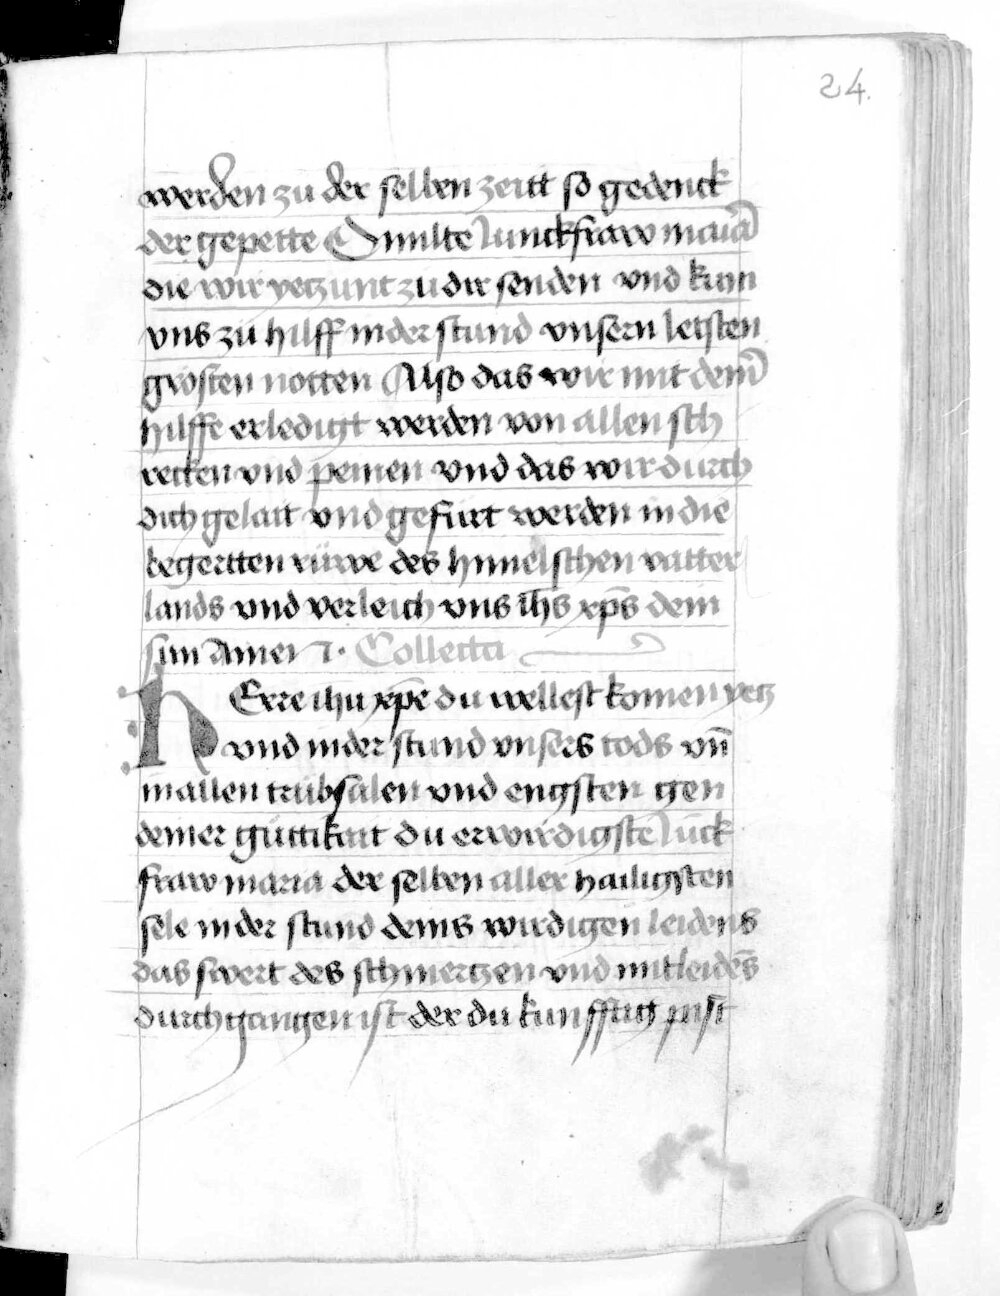 24.
werden zu der selben zeitt so gedenck
der gepette O milte Junckfraw maria
die wir yetzunt zu dir senden vnd kum
vns zu hilff in der stund vnsern letsten
grosten notten Also das wir mit deinē
hilffe erledigt werden von allen sch
recken vnd peinen vnd das wir durch
dich gelait vnd gefürt werden in die
begertten rüwe des himelschen vatter
lands vnd verleich vns ih̄s xp̄s dein
sun Amen Collecta
HErre ihu xp̄e du wellest komen yetz
vnd in der stund vnsers tods vn̄
in allen trübsalen vnd engsten gen
deiner güttikait du erwirdigste Jūck
fraw maria der selben aller hailigsten
sele in der stund deins wirdigen leidens
das swert des schmertzen vnd mitleidēs
durchgangen ist der du kunfftig pist